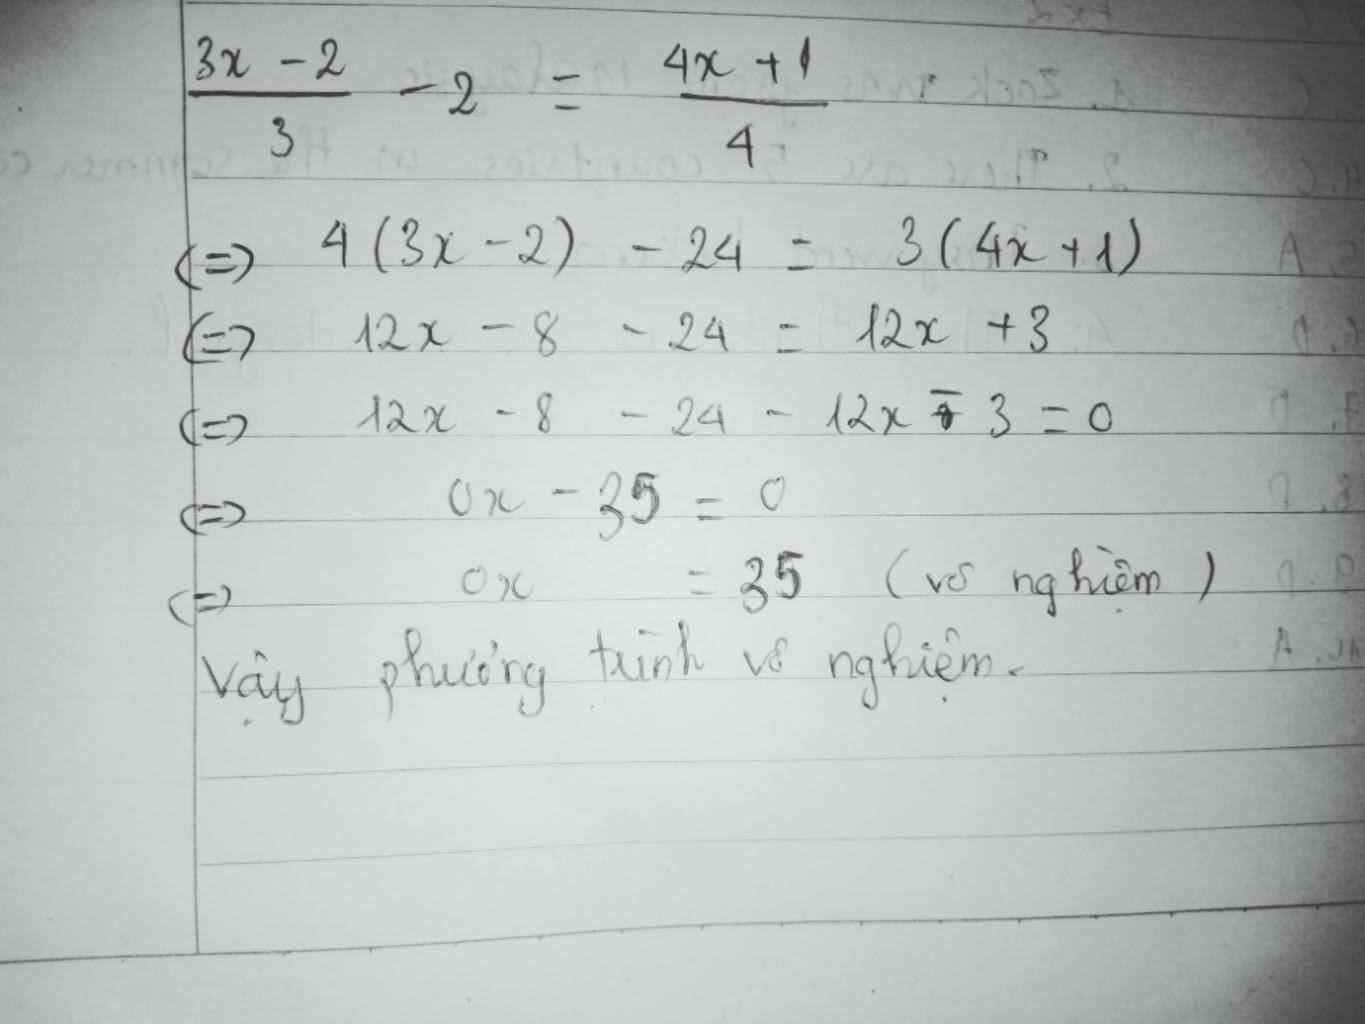 3x - 2 / 3 - 2 = 4x + 1 / 4
(=) 4(3x - 2) - 24 = 3(4x + 1)
(=) 12x - 8 - 24 = 12x + 3
(=) 12x - 8 - 24 - 12x - 3 = 0
(=) 0x - 35 = 0
(=) 0x = 35 (vô nghiệm)
Vậy phương trình vô nghiệm.